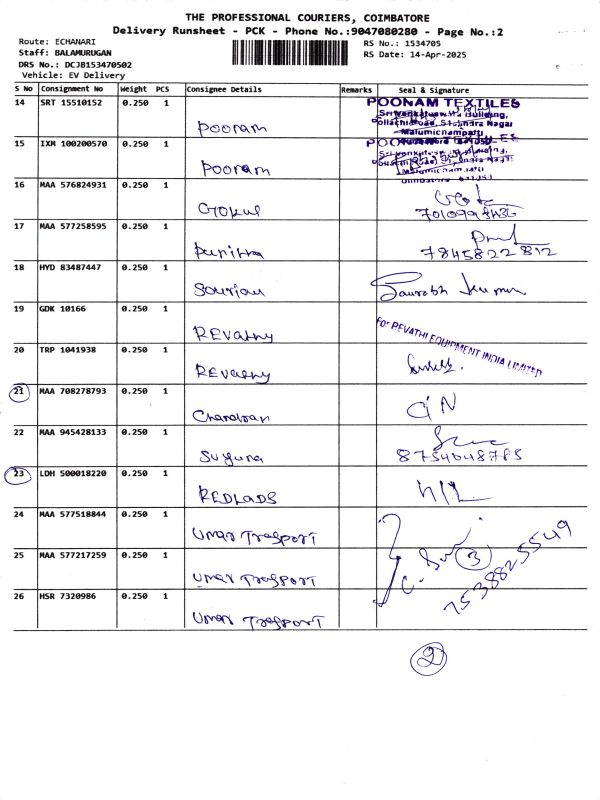 THE PROFESSIONAL COURIERS, COIMBATORE
Delivery Runsheet - PCK - Phone No.:9047080280 - Page No.:2
Route: ECHANARI
Staff: BALAMURUGAN
DRS No.: DCJB153470502
Vehicle: EV Delivery
RS No.: 1534705
RS Date: 14-Apr-2025
S No Consignment No Weight PCS Consignee Details Remarks Seal & Signature
14 SRT 15510152 0.250 1 Pooram POONAM TEXTILES
15 IXM 100200570 0.250 1 Pooram
16 MAA 576824931 0.250 1 Gokul
17 MAA 577258595 0.250 1 Punitha 7845822812
18 HYD 83487447 0.250 1 Saurabh Kumar
19 GDK 10166 0.250 1 REVathy For REVATHI EQUIPMENT INDIA LIMITED
20 TRP 1041938 0.250 1 REVathy
21 MAA 708278793 0.250 1
22 MAA 945428133 0.250 1 Suguna
23 LDH 500018220 0.250 1 REDLADS
24 MAA 577518844 0.250 1 Umar Trasport
25 MAA 577217259 0.250 1 Umar Trasport 3 7538825549
26 HSR 7320986 0.250 1 Umar Trasport
2